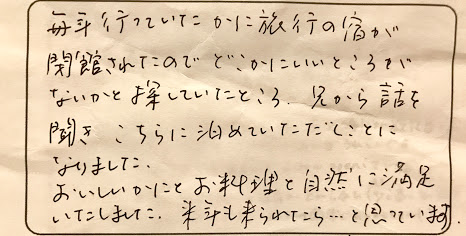 毎年行っていたかに旅行の宿が
閉館されたのでどこかにいいところが
ないかと探していたところ、兄から話を
聞きこちらに泊めていただくことに
なりました。
おいしいかにとお料理と自然に満足
いたしました。来年も来られたら…と思っています。